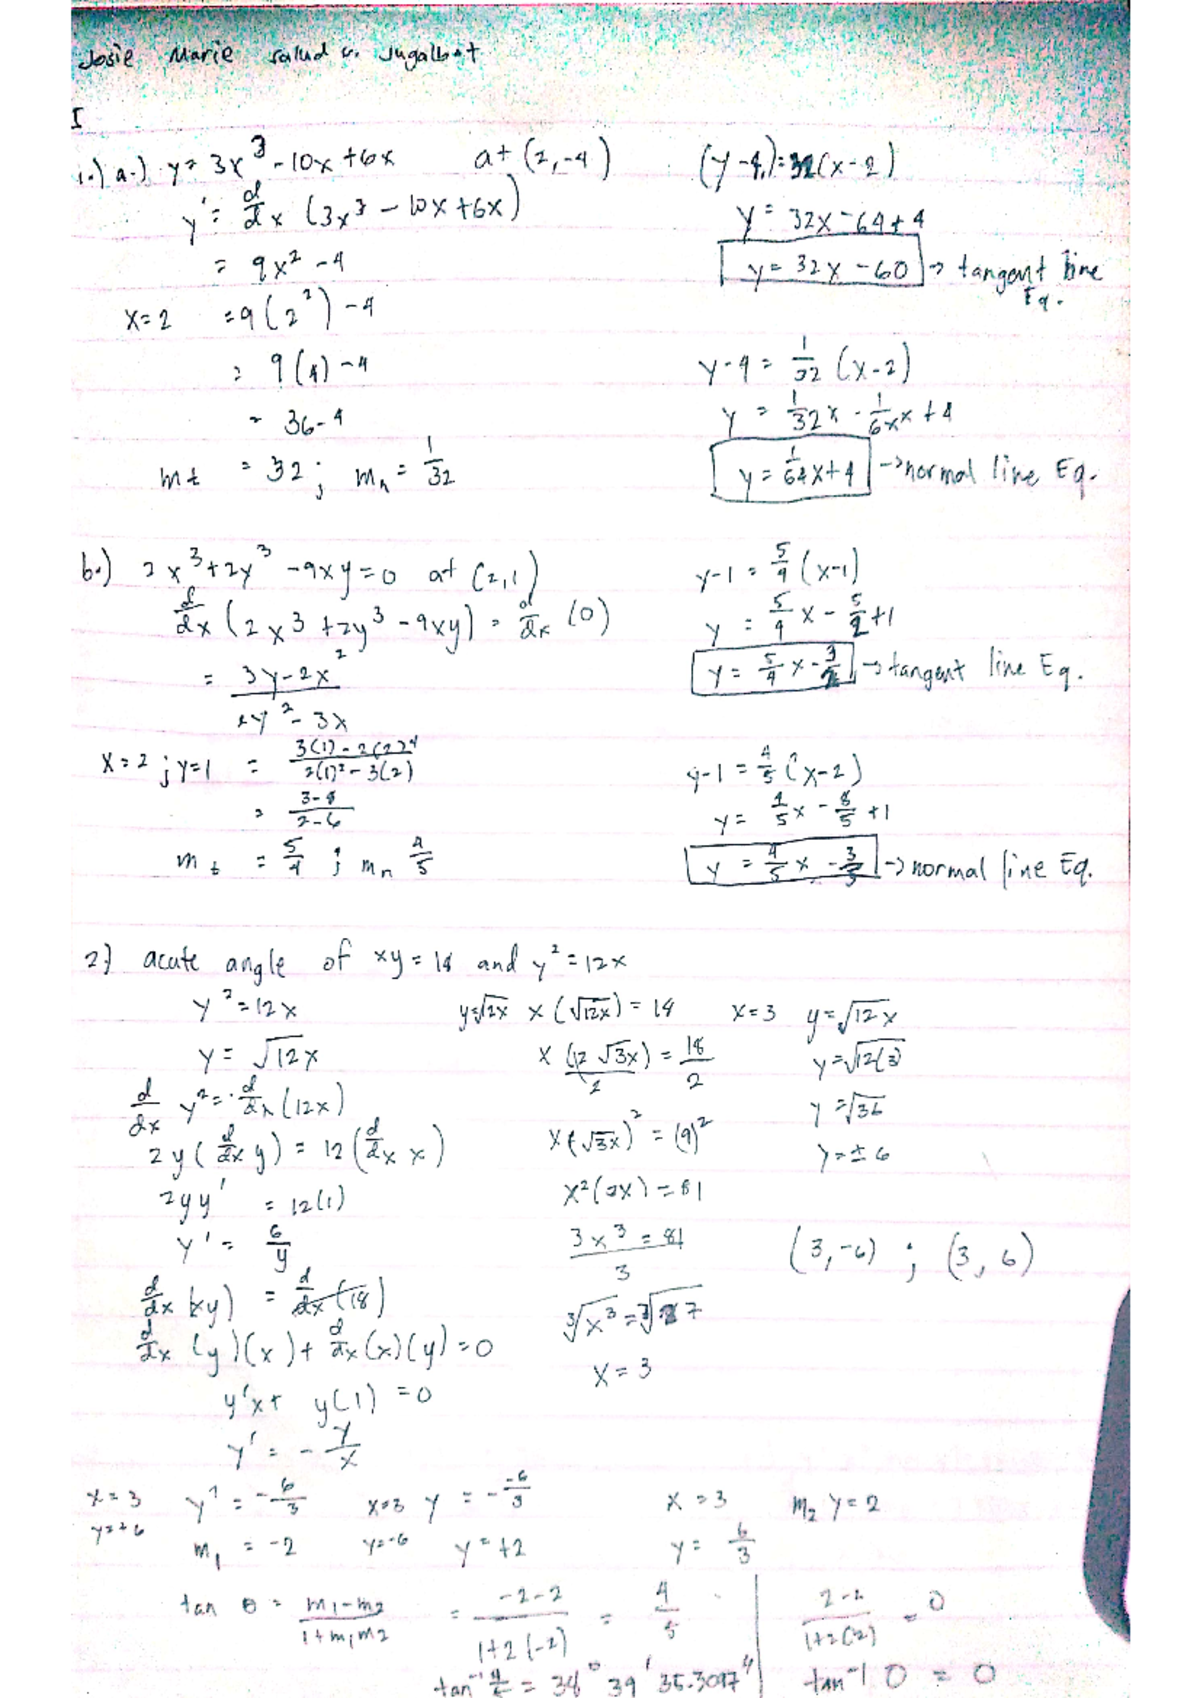 Josie Marie Salud G. Jugalbot
I
1.) a.) y = 3x³ - 10x + 6x at (2,-4)
y' = d/dx (3x³ - 10x + 6x)
= 9x² - 4
x=2 = 9(2²) - 4
= 9(4) - 4
= 36 - 4
mt = 32 ; mn = 1/32
(y - 4) = 32(x - 2)
y = 32x - 64 + 4
y = 32x - 60 → tangent line Eq.
y - 4 = 1/32 (x - 2)
y = 1/32 x - 1/6x x + 4
y = 1/64 x + 4 → normal line Eq.
b.) 2x³ + 2y³ - 9xy = 0 at (2,1)
d/dx (2x³ + 2y³ - 9xy) = d/dx (0)
= 3y - 2x² / 2y² - 3x
x=2 ; y=1 = 3(1) - 2(2)² / 2(1)² - 3(2)
= 3-8 / 2-6
mt = 5/4 ; mn 4/5
y - 1 = 5/4 (x - 1)
y = 5/4 x - 5/2 + 1
y = 5/4 x - 3/2 → tangent line Eq.
y - 1 = 4/5 (x - 2)
y = 4/5 x - 8/5 + 1
y = 4/5 x - 3/5 → normal line Eq.
2) acute angle of xy = 18 and y² = 12x
y² = 12x
y = √12x
d/dx y² = d/dx (12x)
2y (d/dx y) = 12 (d/dx x)
2yy' = 12(1)
y' = 6/y
d/dx (xy) = d/dx (18)
d/dx (y)(x) + d/dx (x)(y) = 0
y'x + y(1) = 0
y' = - y/x
y=√12x x(√12x) = 18
x(2√3x)/2 = 18/2
x(√3x)² = (9)²
x²(3x) = 81
3x³ = 81 / 3
³√x³ = ³√27
x = 3
x=3 y = √12x
y = √12(3)
y = √36
y = ± 6
(3,-6) ; (3, 6)
x = 3 y' = - 6/3
y = +6
m₁ = -2
x=3 y = - -6/3
y=-6 y = +2
x = 3 m₂ y = 2
y = 6/3
tan θ = m₁-m₂ / 1+m₁m₂ = -2-2 / 1+2(-2) = 4/5
2-2 / 1+2(2) = 0
tan⁻¹ 0 = 0